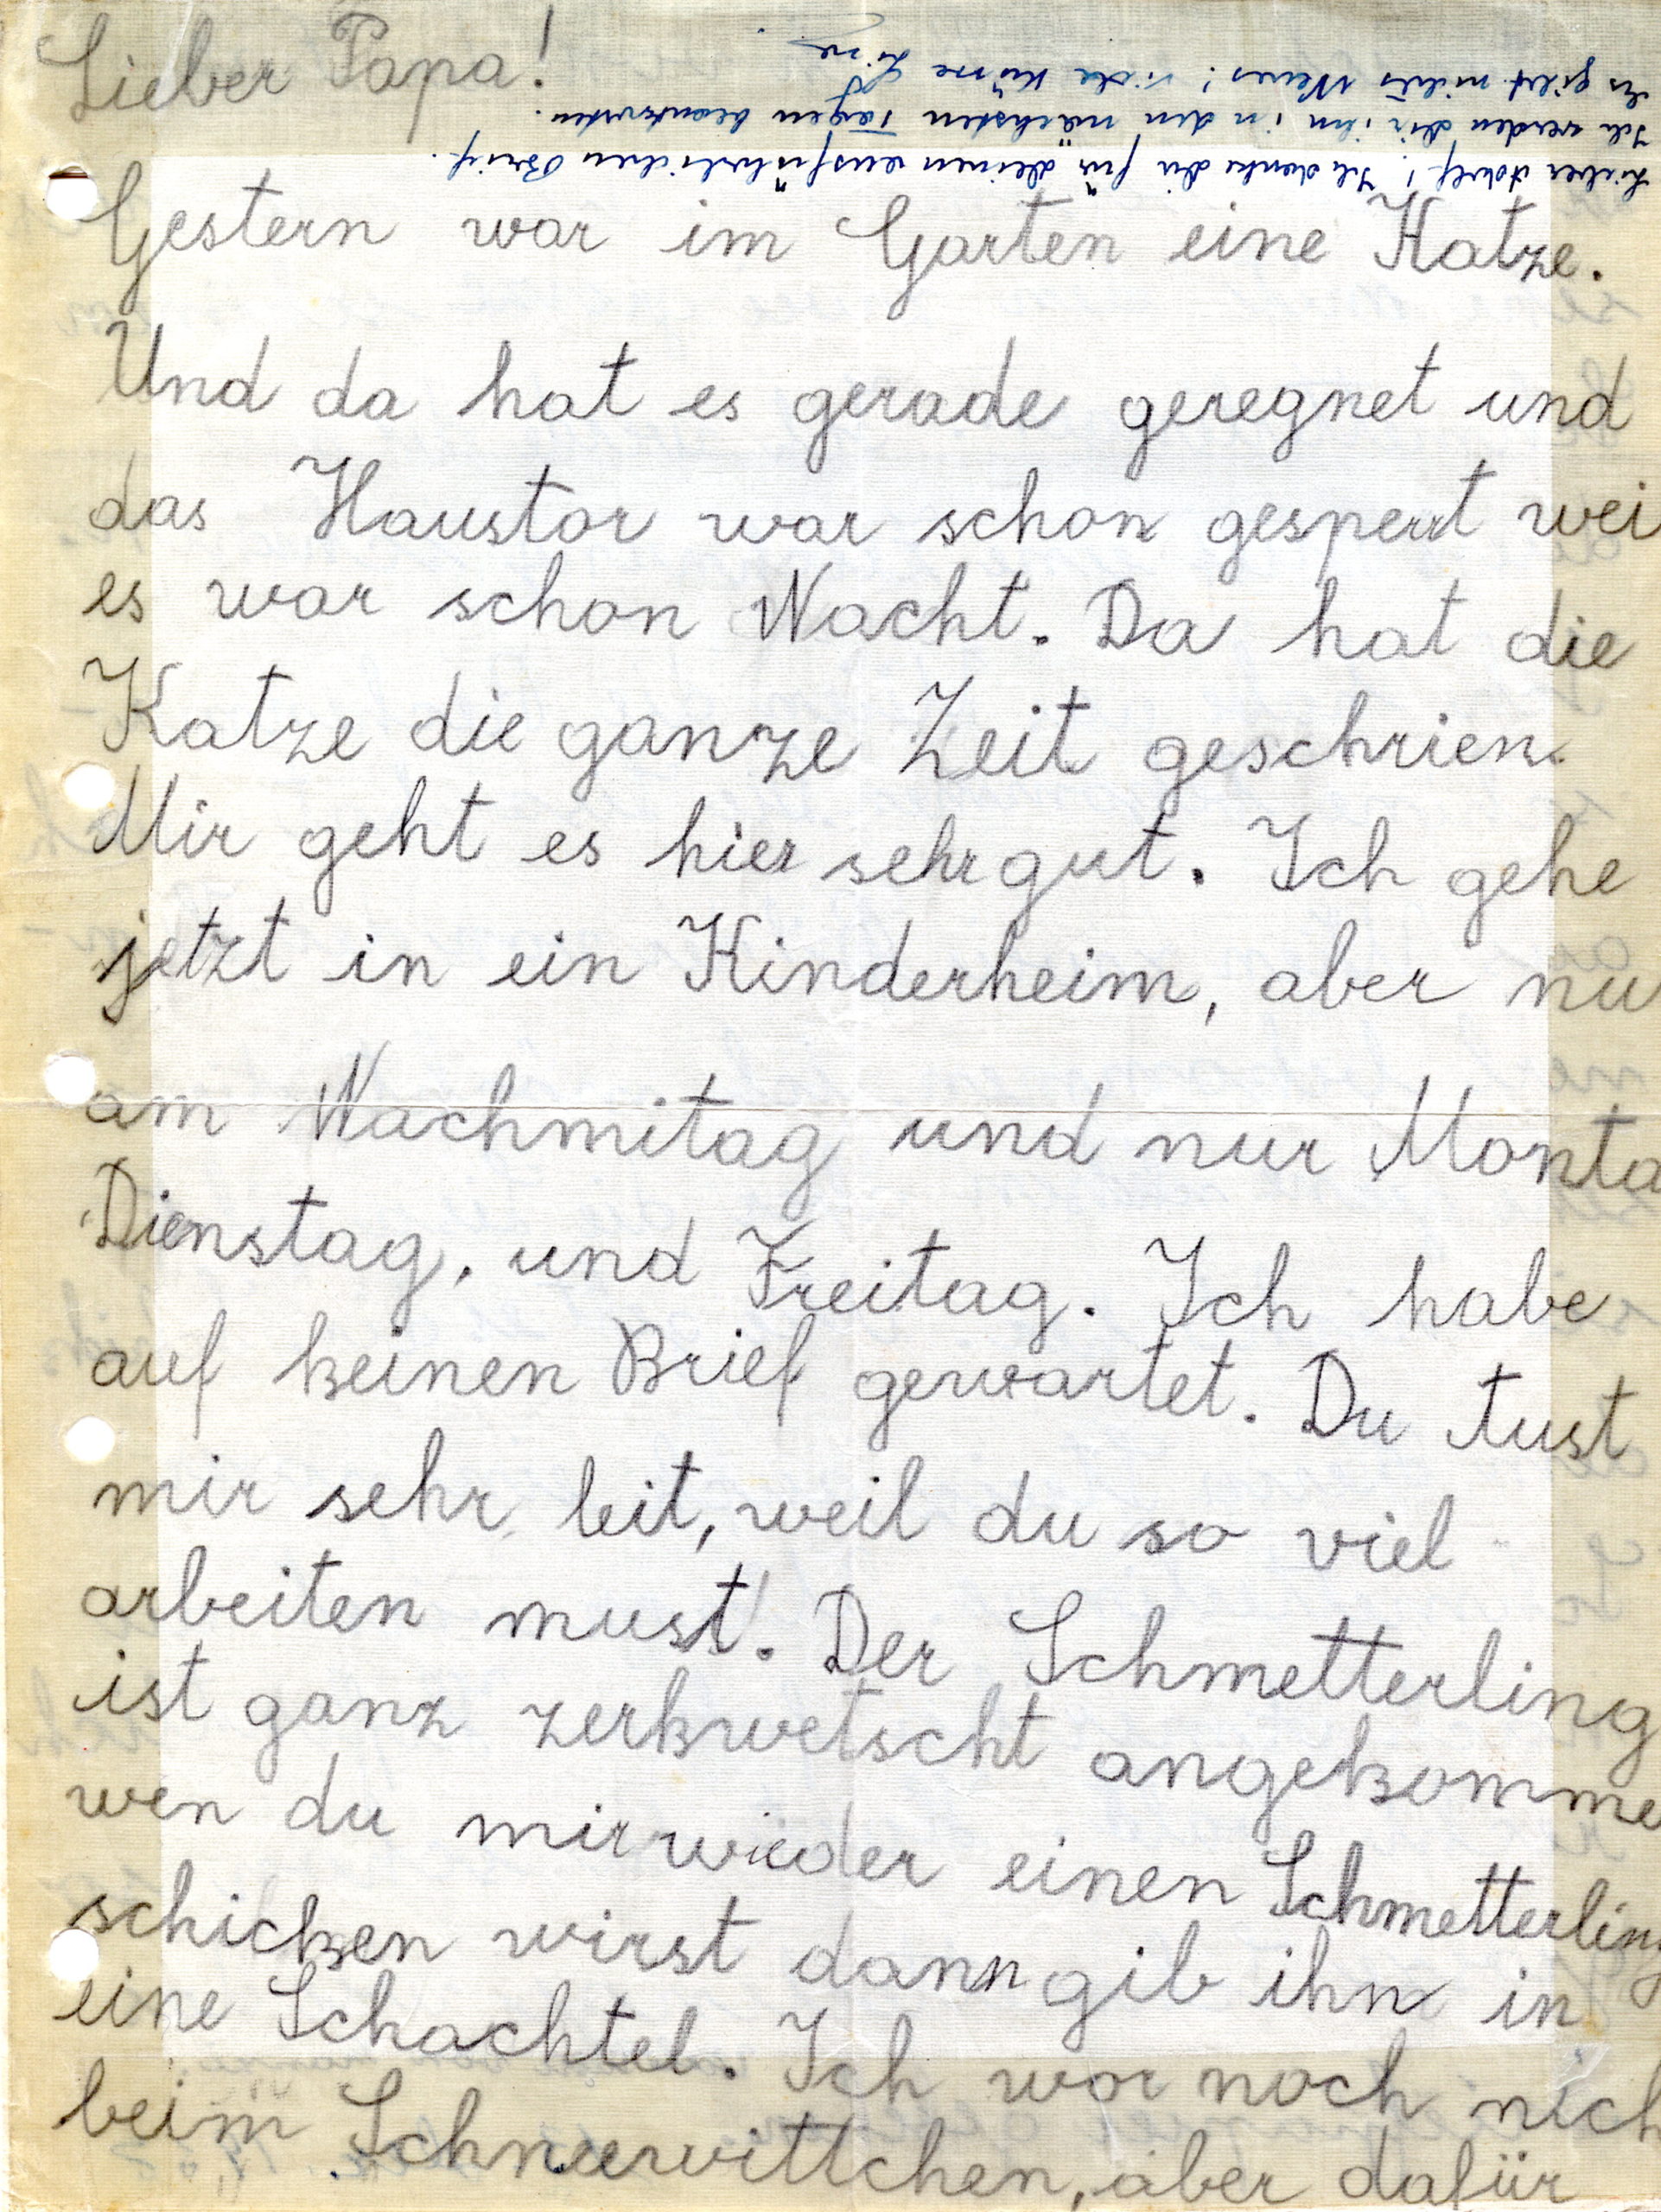 Lieber Papa!
Lieber Adolf! Ich danke dir für deinen ausführlichen Brief.
Ich werden dir ihn in den nächsten Tagen beantworten.
Es gibt nichts Neues! viele Küsse
Gestern war im Garten eine Katze.
Und da hat es gerade geregnet und
das Haustor war schon gesperrt wei
es war schon Nacht. Da hat die
Katze die ganze Zeit geschrien.
Mir geht es hier sehr gut. Ich gehe
jetzt in ein Kinderheim, aber nu
am Nachmitag und nur Monta
Dienstag, und Freitag. Ich habe
auf keinen Brief gewartet. Du tust
mir sehr leit, weil du so viel
arbeiten must. Der Schmetterling
ist ganz zerkwetscht angekomme
wen du mir wieder einen Schmetterling
schicken wirst dann gib ihn in
eine Schachtel. Ich war noch nich
beim Schneewittchen, aber dafür